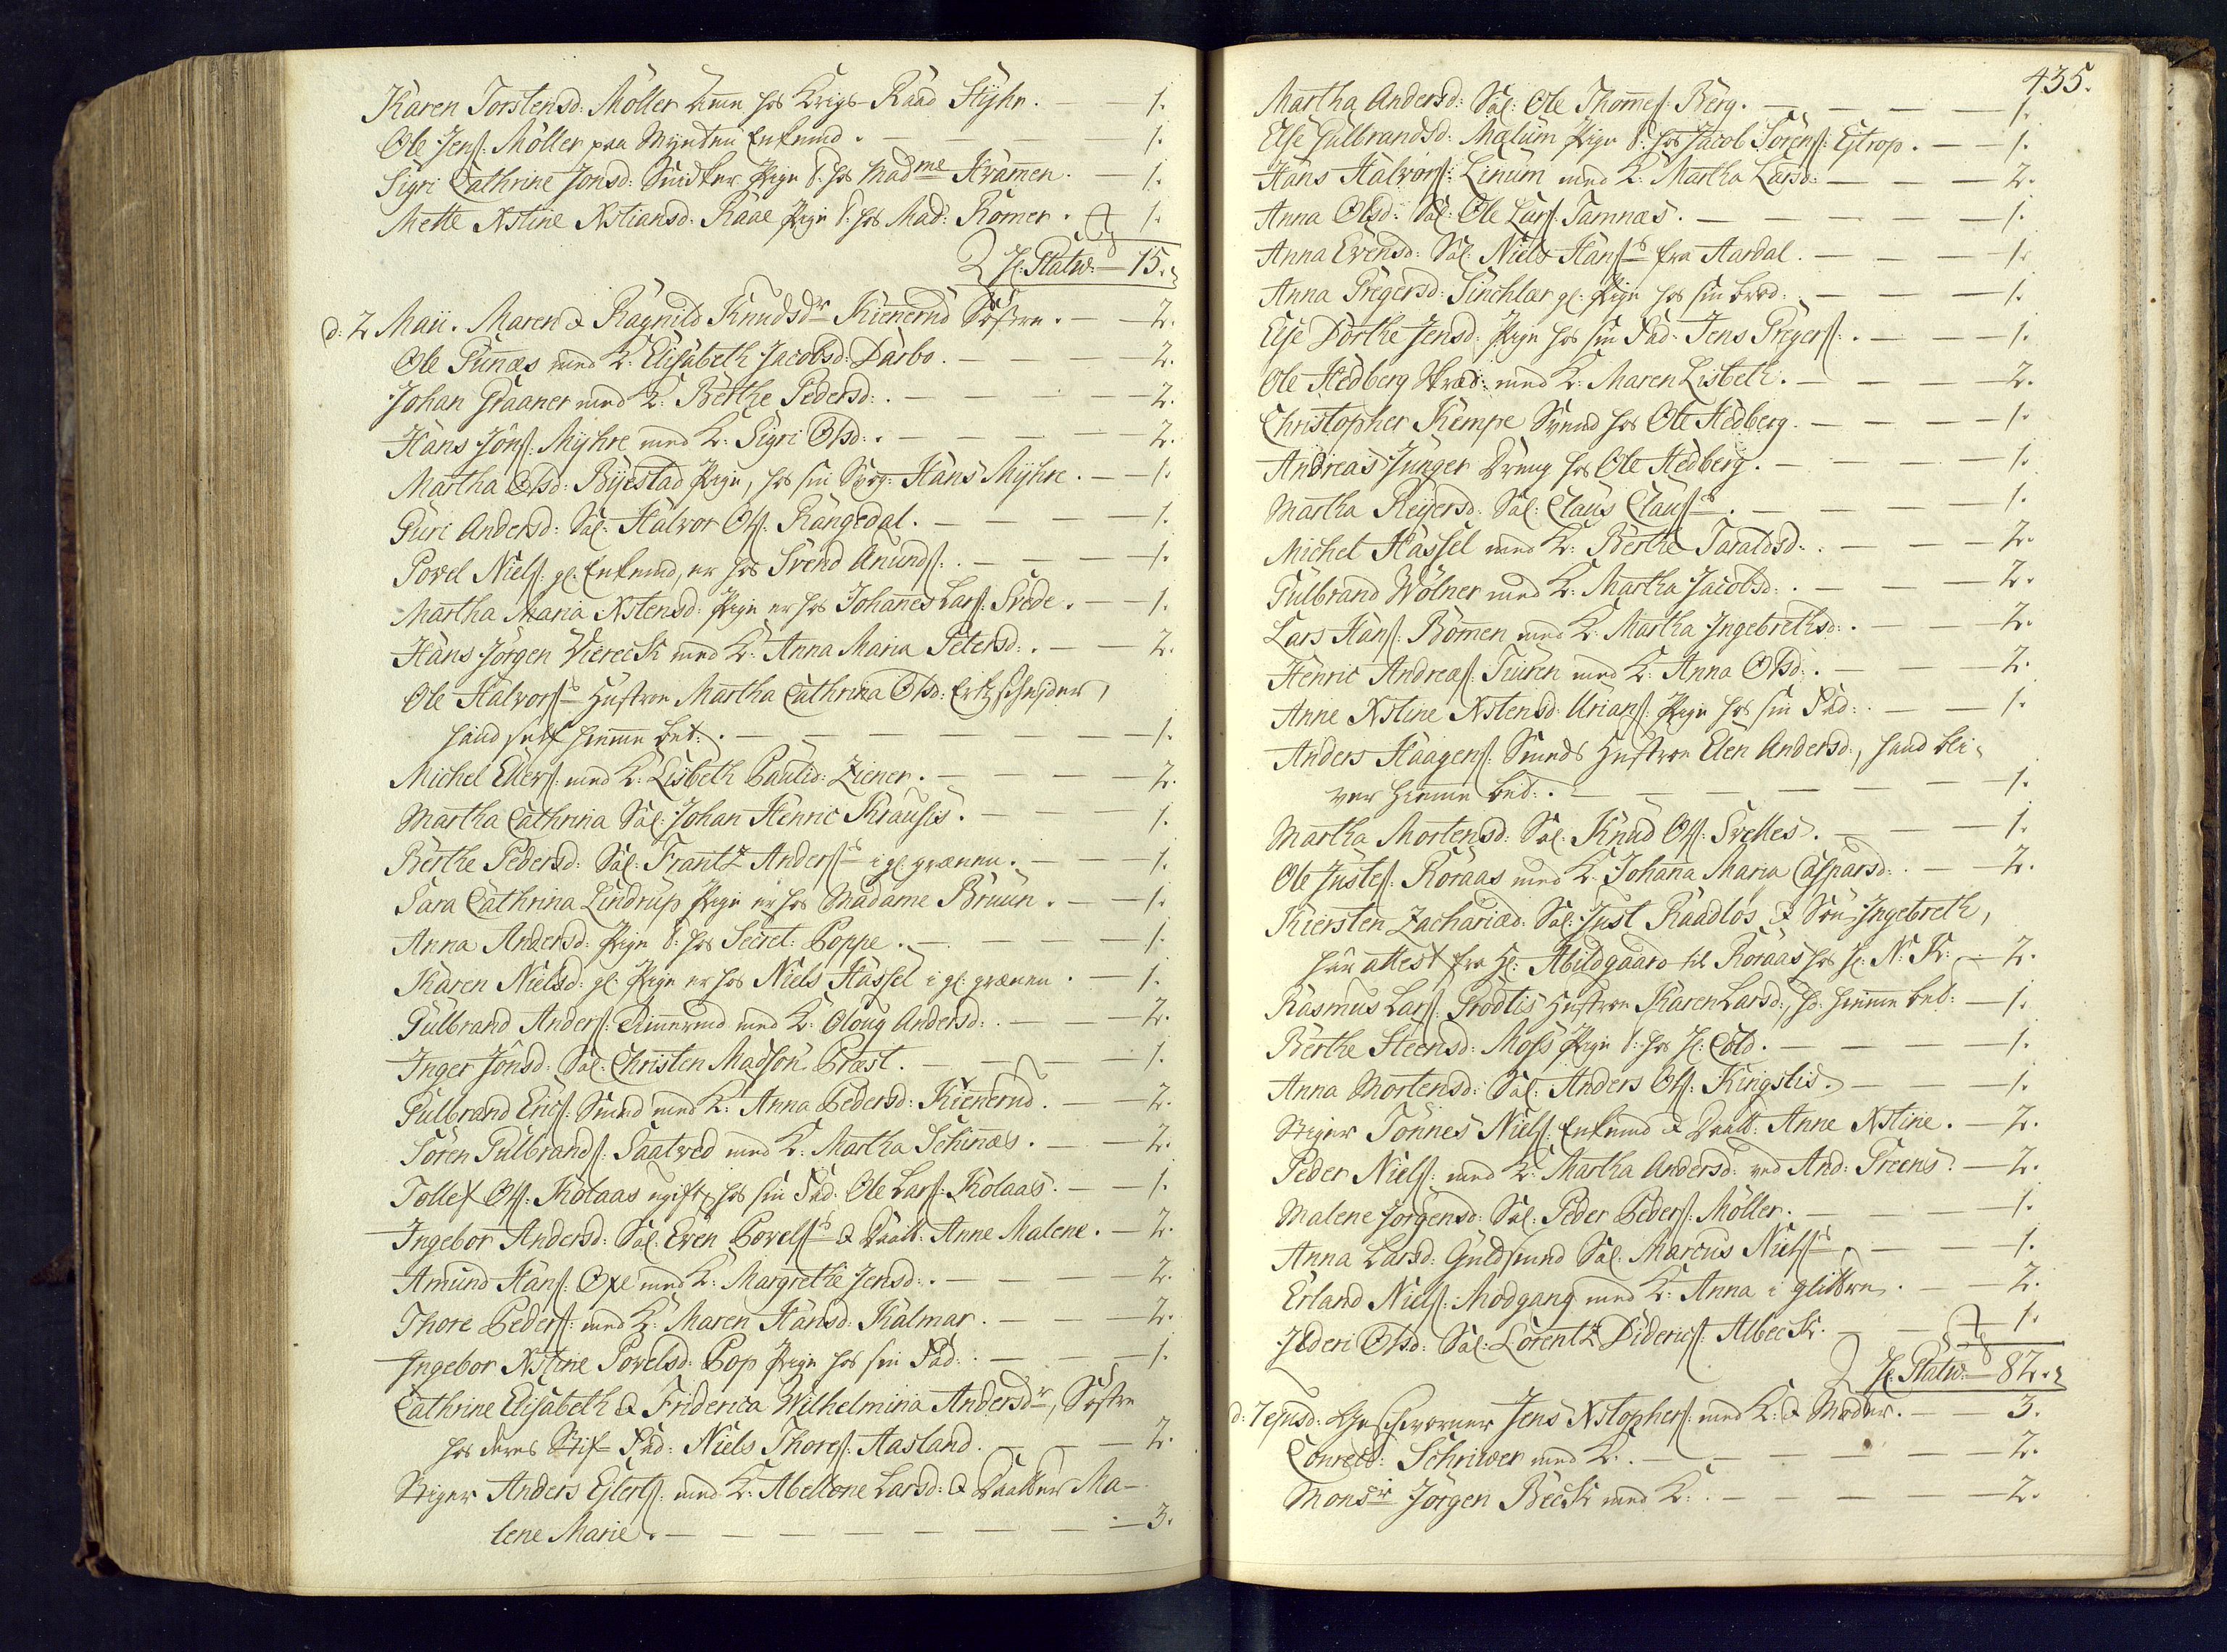 Karen Torstensd: Möller Amme hos Krigs-Raad Hÿhr. — 1.
Ole Jens: Möller paa Mynten Enkemd. — 1.
Sigri Cathrine Jonsd: Pige t: hos Madme Kramen. — 1.
Mette Xstine Xstiansd: Raae Pige t: hos Mad: Römer. 1.
H: Statw: — 15.
d: 2 Maii. Maren & Ragnild Knudsdr Kienerud Søstre. — 2.
Ole Gunnæs med K: Elisabeth Jacobsd: Darbo. — 2.
Johan Graaner med K: Berthe Pedersd: — 2.
Hans Jons: Mÿhre med K: Sigri Olsd: — 2.
Martha Olsd: Bÿestad Pige, hos sin Svog: Hans Mÿhre. — 1.
Guri Andersd: Sal: Halvor Ols: Rangedal. — 1.
Povel Niels: gl: Enkemd, er hos Svend Anunds: — 1.
Martha Maria Xstensd: Pige er hos Johannes Lars: Svede. — 1.
Hans Jörgen Viereck med K: Anna Maria Petersd: — 2.
Ole Halvors Hustroe Martha Cathrina Olsd: Ertzscheider,
hand self hiemme bet: — 1.
Michel Ellers: med K: Lisbeth Paulid: Ziener. — 2.
Martha Cathrina Sal: Johan Henric Krausis. — 1.
Berthe Pedersd: Sal: Frantz Anders i gl grænen. — 1.
Sara Cathrina Lindrup Pige er hos Madame Bruun. — 1.
Anna Andersd: Pige t: hos Secret: Poppe. — 1.
Karen Nielsd: gl: Pige er hos Niels Hassel i gl: grænen. 1.
Gulbrand Anders: med K: Oloug Andersd: — 2.
Inger Jonsd: Sal: Christen Madson Præst. — 1.
Gulbrand Erics: Smed med K: Anna Pedersd: Kienerud. — 2.
Sören Gulbrands: Saatved med K: Martha Schinnæs. — 2.
Tollef Ols: Kolaas ugift, hos sin Fad: Ole Lars: Kolaas. — 1.
Ingebor Andersd: Sal: Even Povels & Daatt: Anne Malene. — 2.
Amund Hans: Oxe med K: Margrethe Jensd: — 2.
Thore Peders: med K: Maren Hansd: Kalmar. — 2.
Ingebor Xstine Povelsd: Pop Pige hos sin Fad: — 1.
Cathrine Elisabeth & Friderica Wilhelmina Andersdr, Søstre
hos deres Stif-Fad: Niels Thores: Aasland. — 2.
Stiger Anders Eilerts: med K: Abellone Larsd: & Daatter Ma-
lene Marie. — 3.
435.
Martha Andersd: Sal: Ole Thomes: Berg. — 1.
Else Gulbrandsd: Mælum Pige t: hos Jacob Sörens: Estrop. — 1.
Hans Halvors: Linum med K: Martha Larsd: — 2.
Anna Olsd: Sal: Ole Lars: Tamnæs. — 1.
Anna Evensd: Sal: Niels Hans fra Aardal. — 1.
Anna Gregersd: Sinchlar gl: Pige hos sin brod: — 1.
Else Dorthe Jensd: Pige hos sin Fad: Jens Gregers: — 1.
Ole Hedberg Skræd: med K: Maren Lisbeth. — 2.
Christopher Kempe Svend hos Ole Hedberg. — 1.
Andreas Junger Dreng hos Ole Hedberg. — 1.
Martha Reÿersd: Sal: Claus Claus. — 1.
Michel Hassel med K: Berthe Taraldsd: — 2.
Gulbrand Wölner med K: Martha Jacobsd: — 2.
Lars Hans: Bommen med K: Martha Ingebrethsd: — 2.
Henric Andreas: Turen med K: Anna Olsd: — 2.
Anne Xstine Xstensd: Urians: Pige hos sin Fad: — 1.
Anders Haagens: Smeds Hustroe Elen Andersd:, hand bli-
ver hiemme bet: — 1.
Martha Mortensd: Sal: Knud Ols: Svelles. — 1.
Ole Justes: Röraas med K: Johana Maria Caspersd: — 2.
Kiersten Zachariæd: Sal: Just Raadlös & Søn Ingebreth,
har attest fra H: Abildgaard til Röraas hos H: N: K: — 2.
Rasmus Lars: Prodtis Hustroe Karen Larsd:, hd: hiemme bet: — 1.
Berthe Steensd: Moss Pige t: hos H: Cold. — 1.
Anna Mortensd: Sal: Anders Ols: Kingstis. — 1.
Stiger Tönnes Niels: Enkemd & Daatt: Anne Xstine. — 2.
Peder Niels: med K: Martha Andersd: ved And: Greens. — 2.
Malene Jorgensd: Sal: Peder Peders: Möller. — 1.
Anna Larsd: Guldsmed Sal: Marcus Niels. — 1.
Erland Niels: Modgang med K: Anna i glittre. — 2.
Olsd: Sal: Lorentz Diderics: Albeck. — 1.
H: Statw: — 82.
d: 7 ejusd: Geschworner Jens Xstophers: med K: & Moder. — 3.
Conrect: Schriwer med K: — 2.
Monsr Jörgen Beck med K: — 2.